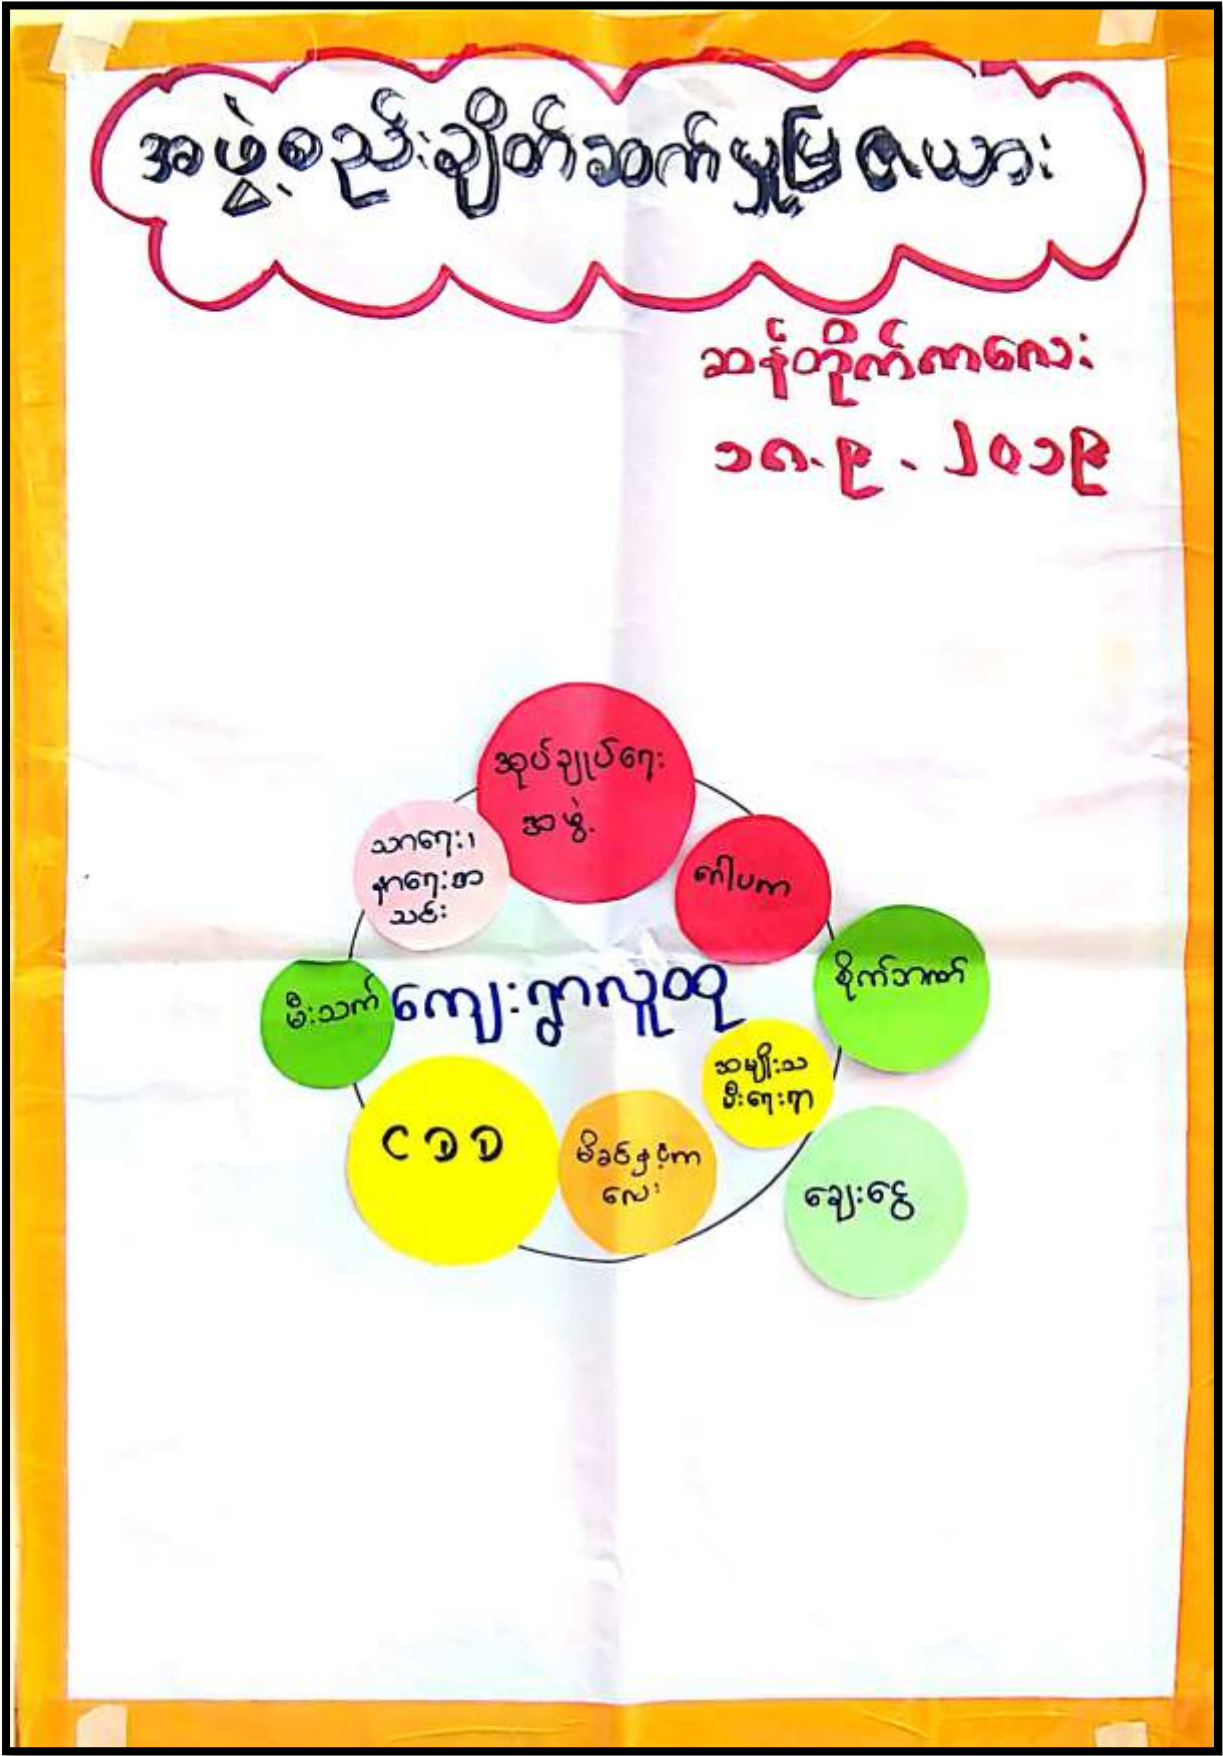 အဖွဲ့စည်းချိတ်ဆက်မှုမြဇယား
ဆန်တိုက်ကလေး
၁၈.၉.၂၀၁၉
အုပ်ချုပ်ရေး
အဖွဲ့
သာရေး၊
နာရေးစာ
သင်း
ဂေါပက
စိုက်ဘဏ်
မီးသတ်
ကျေးရွာလူထု
အမျိုးသ
မီးရေးရာ
CDD
မိခင်နှင့်က
လေး
ချေးငွေ